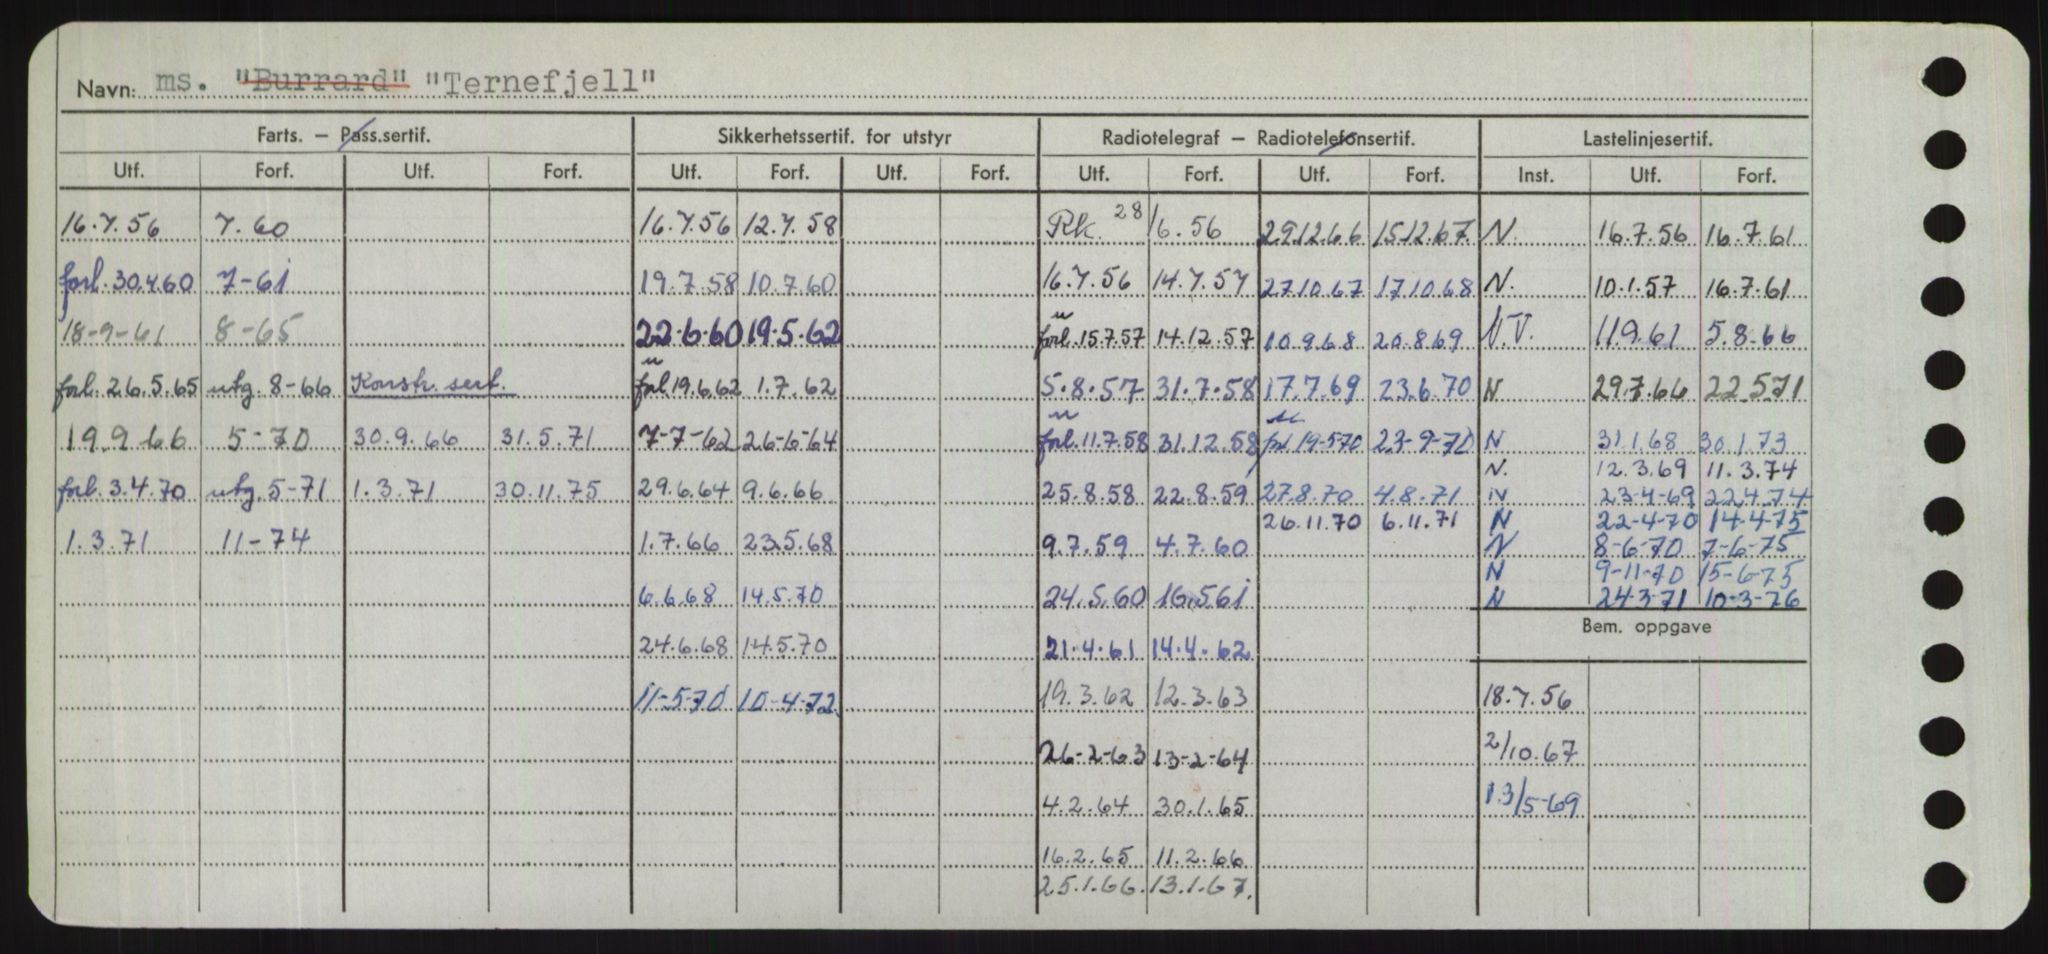 Navn: ms. "Burrard" "Ternefjell"
Farts. – Pass.sertif. Sikkerhetssertif. for utstyr Radiotelegraf – Radiotelefonsertif. Lastelinjesertif.
Utf. Forf. Utf. Forf. Utf. Forf. Utf. Forf. Utf. Forf. Utf. Forf. Inst. Utf. Forf.
16.7.56 7.60 16.7.56 12.7.58 Rk. 28/6.56 29.12.66 15.12.67 N. 16.7.56 16.7.61
forl. 30.4.60 7-61 19.7.58 10.7.60 16.7.56 14.7.57 27.10.67 17.10.68 N. 10.1.57 16.7.61
18-9-61 8-65 22.6.60 19.5.62 forl. 15.7.57 14.12.57 10.9.68 20.8.69 V.V. 11.9.61 5.8.66
forl. 26.5.65 utg. 8-66 Konstr. sert. forl 19.6.62 1.7.62 5.8.57 31.7.58 17.7.69 23.6.70 N 29.7.66 22.5.71
19.9.66 5-70 30.9.66 31.5.71 7-7-62 26-6-64 forl. 11.7.58 31.12.58 forl 19-5-70 23-9-70 N 31.1.68 30.1.73
N. 12.3.69 11.3.74
forl. 3.4.70 utg. 5-71 1.3.71 30.11.75 29.6.64 9.6.66 25.8.58 22.8.59 27.8.70 4.8.71 N 23-4-69 22.4.74
26.11.70 6.11.71 N 22-4-70 14-4-75
1.3.71 11-74 1.7.66 23.5.68 9.7.59 4.7.60 N 8-6-70 7-6-75
N 9-11-70 15-6-75
6.6.68 14.5.70 24.5.60 16.5.61 N 24-3-71 10-3-76
Bem. oppgave
24.6.68 14.5.70 21.4.61 14.4.62
11-5-70 10-4-72 19.3.62 12.3.63 18.7.56
26-2-63 13-2-64 2/10.67
4.2.64 30.1.65 13/5-69
16.2.65 11.2.66
25.1.66 13.1.67.